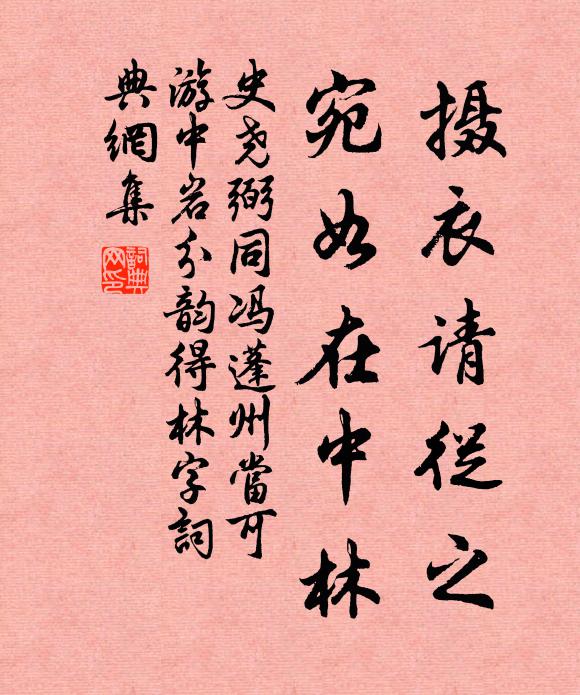 摄衣请從之
宛如在中林
史尧弼同冯蓬州當可
游中岩分韵得林字詞
典網集
詞典
网印